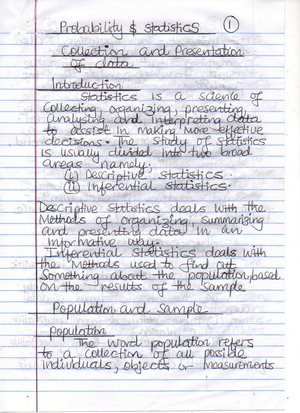 Probability & Statistics 1
Collection and Presentation
of data
Introduction
Statistics is a science of
Collecting, organizing, presenting,
analysing and interpreting data
to assist in making more effective
decisions. The study of statistics
is usually divided into two broad
areas namely:
(i) Descriptive statistics
(ii) Inferential statistics.
Descriptive Statistics deals with the
Methods of organizing, summarizing
and presenting data in an
informative way.
Inferential statistics deals with
the Methods used to find out
Something about the population, based
on the results of the sample
Population and Sample
Population
The word population refers
to a collection of all possible
individuals, objects or measurements